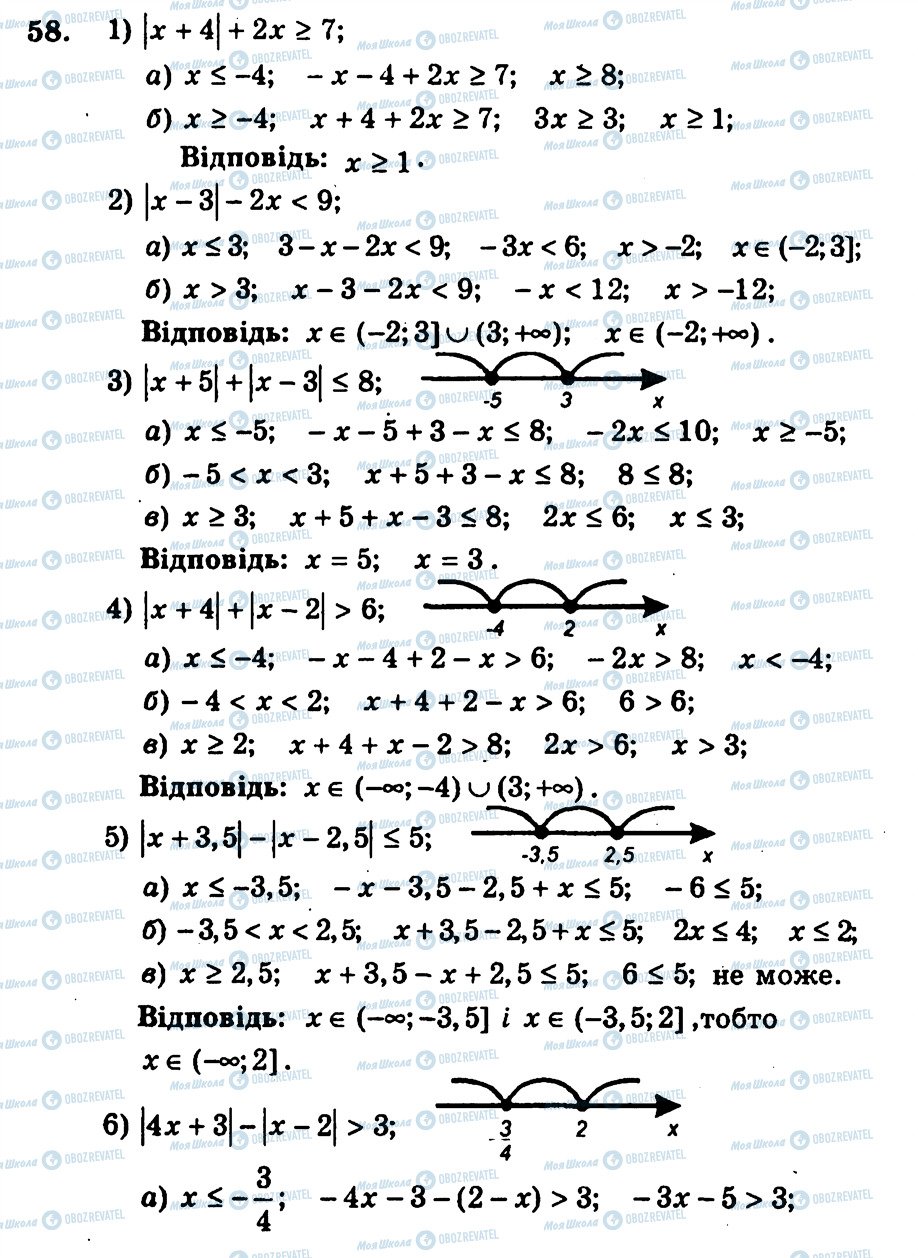 58. 1) |x + 4| + 2x ≥ 7;
а) x ≤ –4; – x – 4 + 2x ≥ 7; x ≥ 8;
б) x ≥ –4; x + 4 + 2x ≥ 7; 3x ≥ 3; x ≥ 1;
Відповідь: x ≥ 1 .
2) |x – 3| – 2x < 9;
а) x ≤ 3; 3 – x – 2x < 9; – 3x < 6; x > –2; x ∈ (–2; 3];
б) x > 3; x – 3 – 2x < 9; – x < 12; x > –12;
Відповідь: x ∈ (–2; 3] ∪ (3; +∞); x ∈ (–2; +∞) .
3) |x + 5| + |x – 3| ≤ 8;
-5 3 x
а) x ≤ –5; – x – 5 + 3 – x ≤ 8; – 2x ≤ 10; x ≥ –5;
б) – 5 < x < 3; x + 5 + 3 – x ≤ 8; 8 ≤ 8;
в) x ≥ 3; x + 5 + x – 3 ≤ 8; 2x ≤ 6; x ≤ 3;
Відповідь: x = 5; x = 3 .
4) |x + 4| + |x – 2| > 6;
-4 2 x
а) x ≤ –4; – x – 4 + 2 – x > 6; – 2x > 8; x < –4;
б) – 4 < x < 2; x + 4 + 2 – x > 6; 6 > 6;
в) x ≥ 2; x + 4 + x – 2 > 8; 2x > 6; x > 3;
Відповідь: x ∈ (–∞; –4) ∪ (3; +∞) .
5) |x + 3,5| – |x – 2,5| ≤ 5;
-3,5 2,5 x
а) x ≤ –3,5; – x – 3,5 – 2,5 + x ≤ 5; – 6 ≤ 5;
б) – 3,5 < x < 2,5; x + 3,5 – 2,5 + x ≤ 5; 2x ≤ 4; x ≤ 2;
в) x ≥ 2,5; x + 3,5 – x + 2,5 ≤ 5; 6 ≤ 5; не може.
Відповідь: x ∈ (–∞; –3,5] і x ∈ (–3,5; 2] ,тобто
x ∈ (–∞; 2] .
6) |4x + 3| – |x – 2| > 3;
-3/4 2 x
а) x ≤ –3/4; – 4x – 3 – (2 – x) > 3; – 3x – 5 > 3;